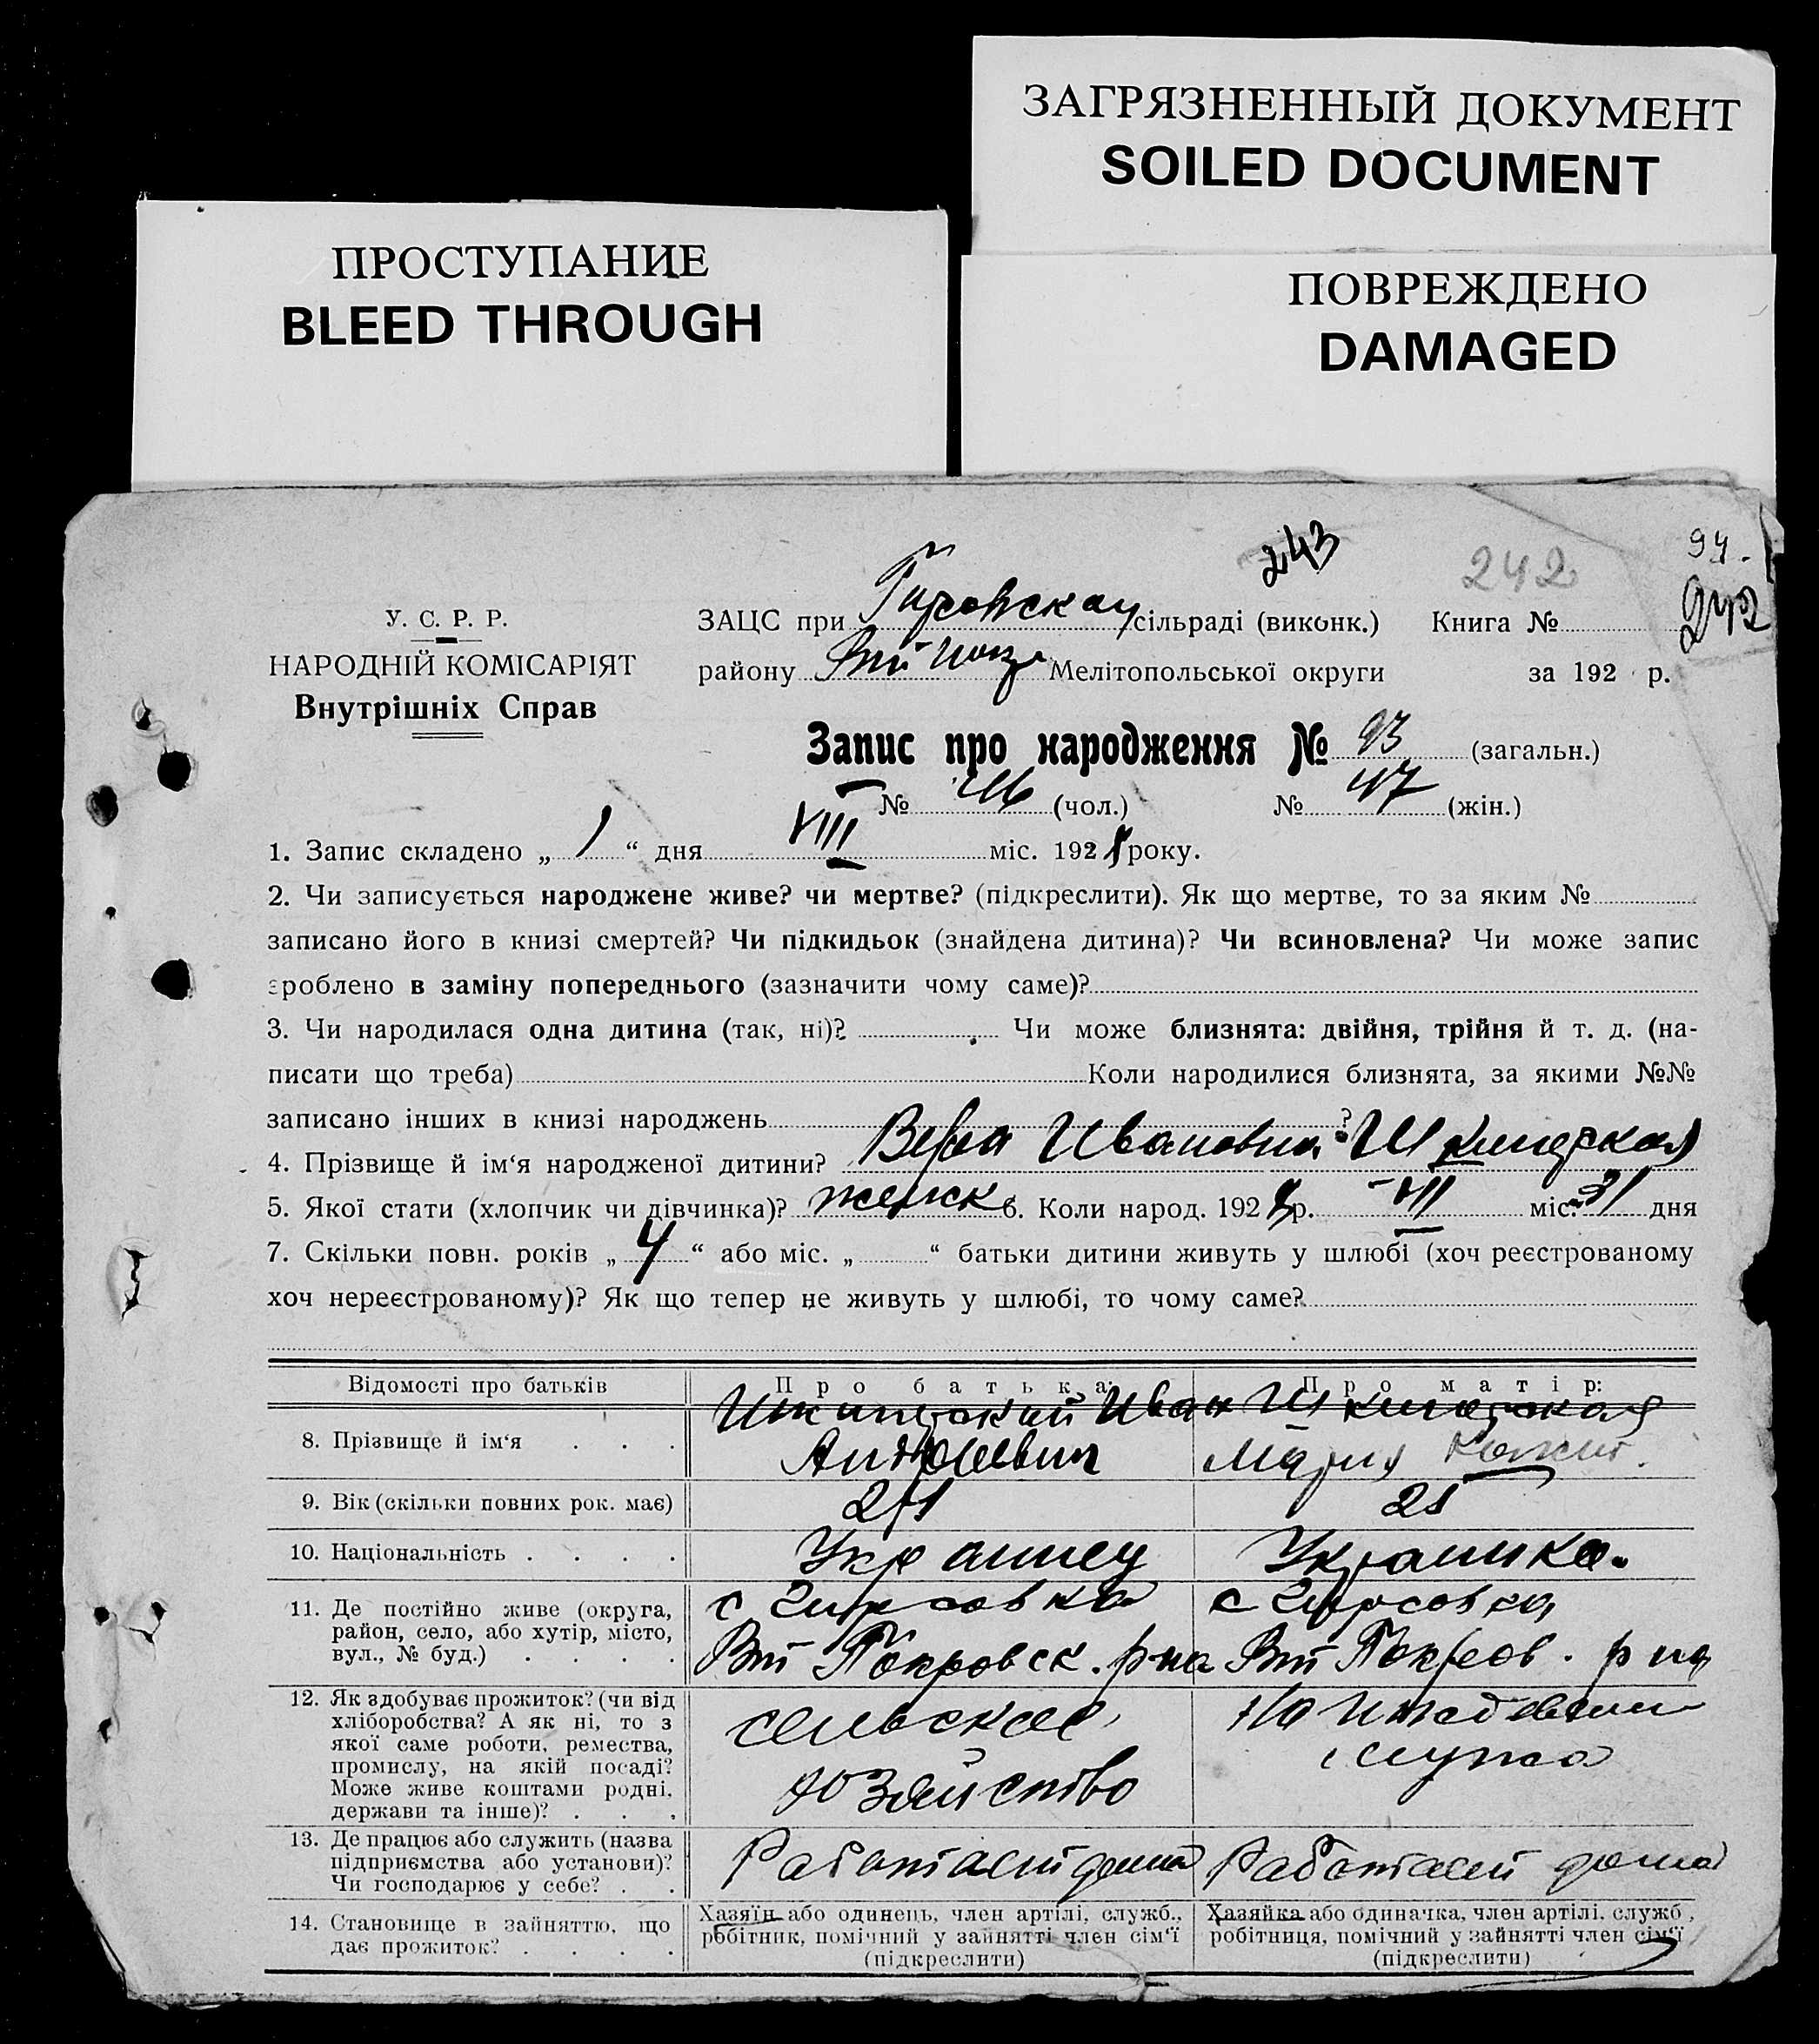 ЗАГРЯЗНЕННЫЙ ДОКУМЕНТ
SOILED DOCUMENT
ПРОСТУПАНИЕ
BLEED THROUGH
ПОВРЕЖДЕНО
DAMAGED
243 242 94.
У. С. Р. Р.
НАРОДНІЙ КОМІСАРІЯТ
Внутрішніх Справ
ЗАЦС при сільраді (виконк.) Книга №
району Мелітопольської округи за 192 р.
Запис про народження № 93 (загальн.)
№ 46 (чол.) № 47 (жін.)
1. Запис складено „ 1 “ дня VIII міс. 192 року.
2. Чи записується народжене живе? чи мертве? (підкреслити). Як що мертве, то за яким №
записано його в книзі смертей? Чи підкидьок (знайдена дитина)? Чи всиновлена? Чи може запис
зроблено в заміну попереднього (зазначити чому саме)?
3. Чи народилася одна дитина (так, ні)? Чи може близнята: двійня, трійня й т. д. (на-
писати що треба) Коли народилися близнята, за якими №№
записано інших в книзі народжень ?
4. Прізвище й ім‘я народженої дитини? Вера Ивановна
5. Якої стати (хлопчик чи дівчинка)? женск 6. Коли народ. 192 р. VII міс. 31 дня
7. Скільки повн. років „ 4 “ або міс. „ “ батьки дитини живуть у шлюбі (хоч реєстрованому
хоч нереєстрованому)? Як що тепер не живуть у шлюбі, то чому саме?
Відомості про батьків Про батька: Про матір:
8. Прізвище й ім‘я . . . Иван Мария
9. Вік (скільки повних рок. має) 21
10. Національність . . . . Украинец Украинка.
11. Де постійно живе (округа, район, село, або хутір, місто, вул., № буд.) . . . . с Гирсовка с Гирсовка
Вт Покровск. р-на Вт Покров. р на
12. Як здобуває прожиток? (чи від хліборобства? А як ні, то з якої саме роботи, ремества, промислу, на якій посаді? Може живе коштами родні, держави та інше)? . . . сельское хозяйство На иждевении мужа
13. Де працює або служить (назва підприємства або установи)? Чи господарює у себе? . . Работает дома Работает дома
14. Становище в зайняттю, що дає прожиток? . . . .
Хазяїн або одинець, член артілі, служб., робітник, помічний у зайнятті член сім‘ї (підкреслити)
Хазяйка або одиначка, член артілі, служб., робітниця, помічний у зайнятті член сім‘ї (підкреслити)